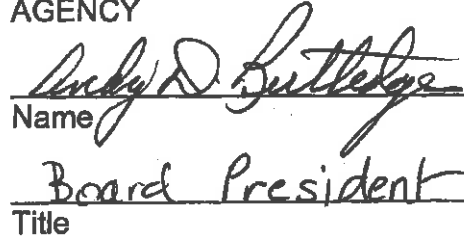 AGENCY
Andy D. Rutledge
Name
Board President
Title